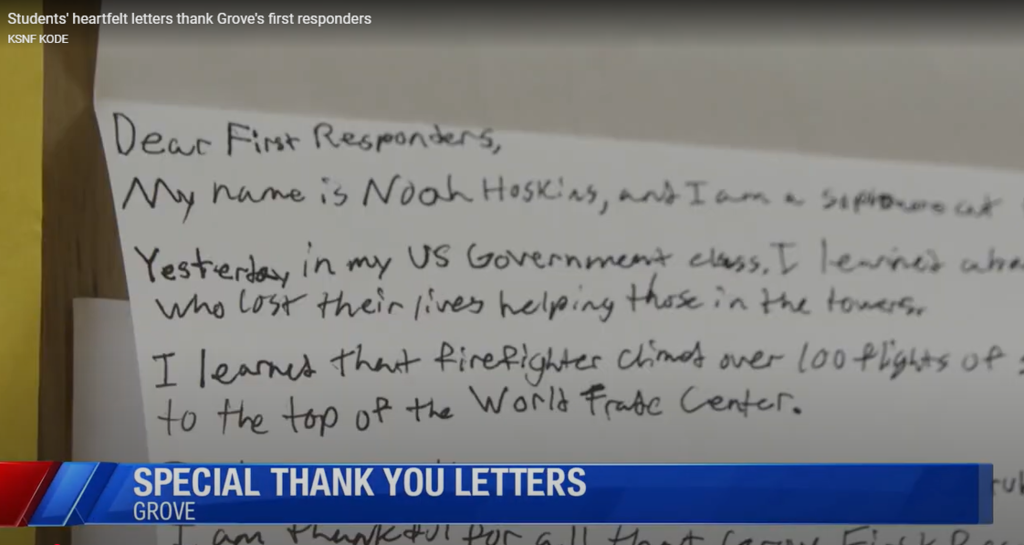 Students' heartfelt letters thank Grove's first responders
KSNF KODE
Dear First Responders,
My name is Noah Hoskins, and I am a
Yesterday in my US Government class, I learned
who lost their lives helping those in the towers.
I learned that firefighter climed over 100 flights of
to the top of the World Trade Center.
SPECIAL THANK YOU LETTERS
GROVE
I am thankful for all that